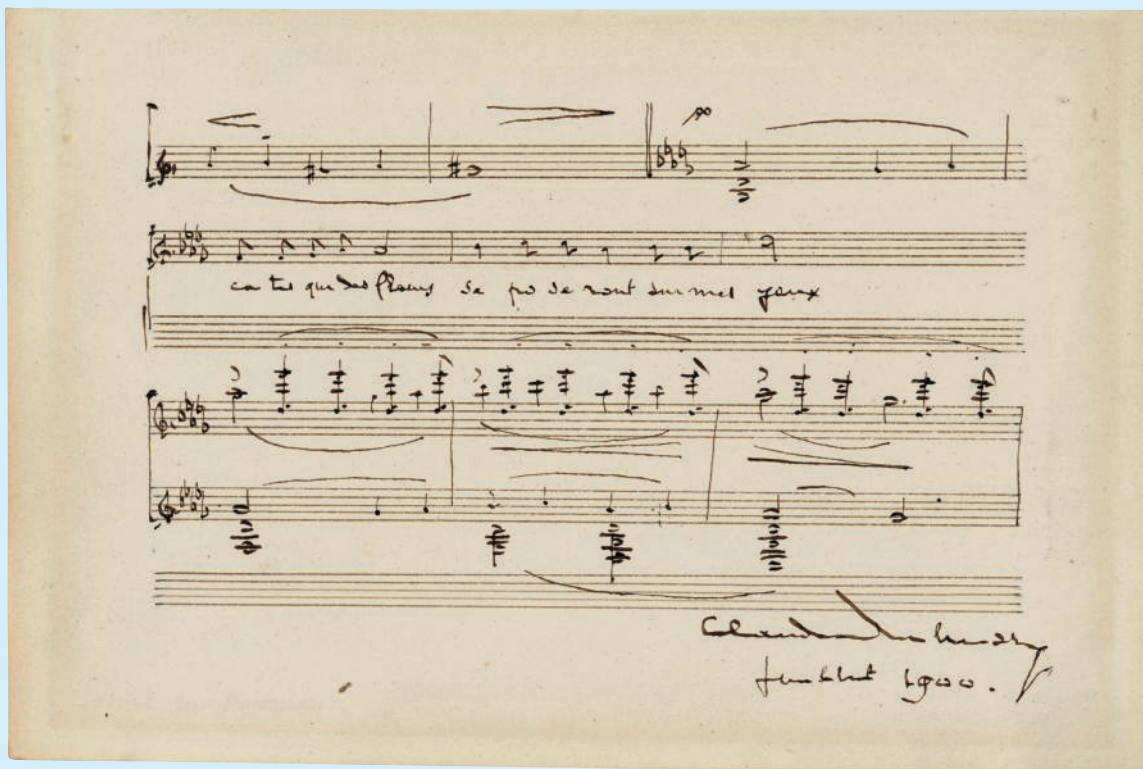 pp
ca tes que des fleurs se po se ront sur mes yeux
Claude Debussy
Juillet 1900.